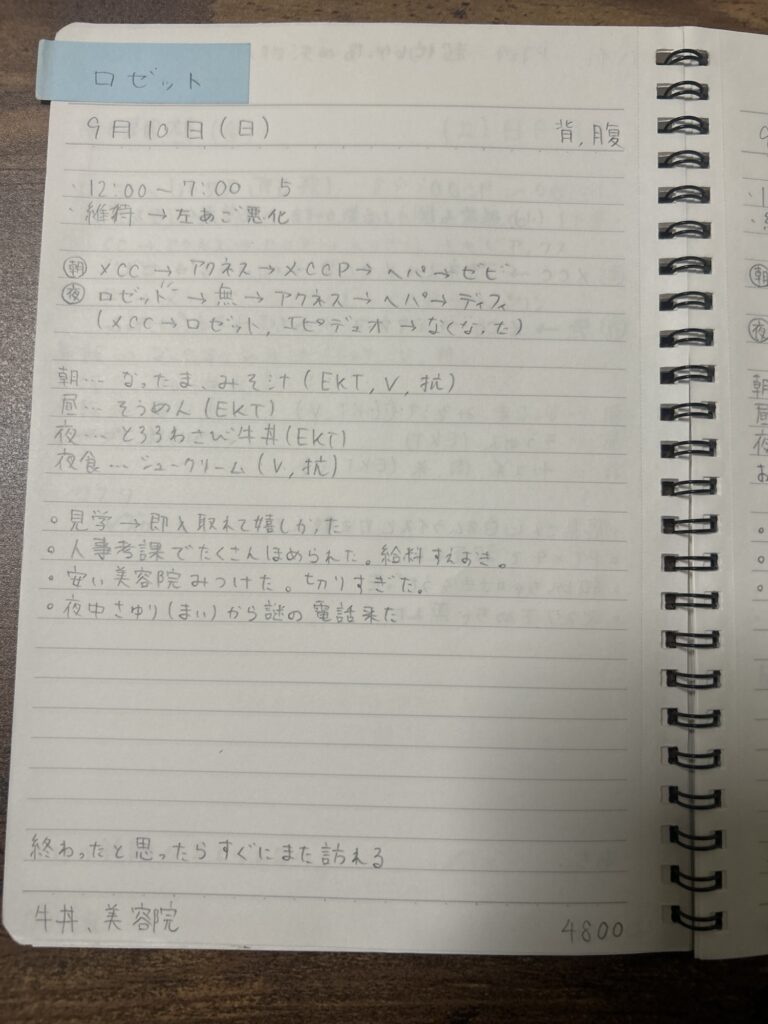 ロゼット
9月10日(日) 背,腹
・12:00~7:00 5
・維持→左あご悪化
朝 メCC→アクネス→メCCP→ヘパ→ゼビ
夜 ロゼット→無→アクネス→ヘパ→ディフィ
(メCC→ロゼット, エピデュオ→なくなった)
朝… なったま、みそ汁(EKT, V, 抗)
昼… そうめん(EKT)
夜… とろろわさび牛丼(EKT)
夜食… シュークリーム(V, 抗)
○見学→即入取れて嬉しかった
○人事考課でたくさんほめられた。給料すえおき。
○安い美容院みつけた。切りすぎた。
○夜中さゆり(まい)から謎の電話来た
終わったと思ったらすぐにまた訪れる
牛丼、美容院 4800